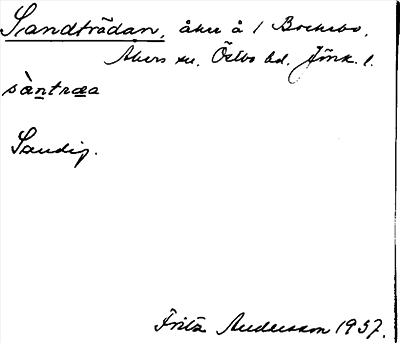 Sandträdan, åker å 1 Bockebo,
Åkers sn. Östbo hd. Jönk. l.
sàntræa
Sandig.
Fritz Andersson 1937.